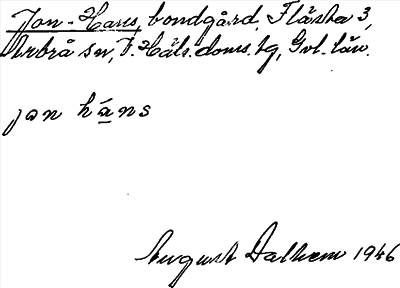 Jon-Hans, bondgård, Flästa 3,
Arbrå sn, V. Häls. doms. hg, Gvl. län.
jon hāns
August Dalhem 1946